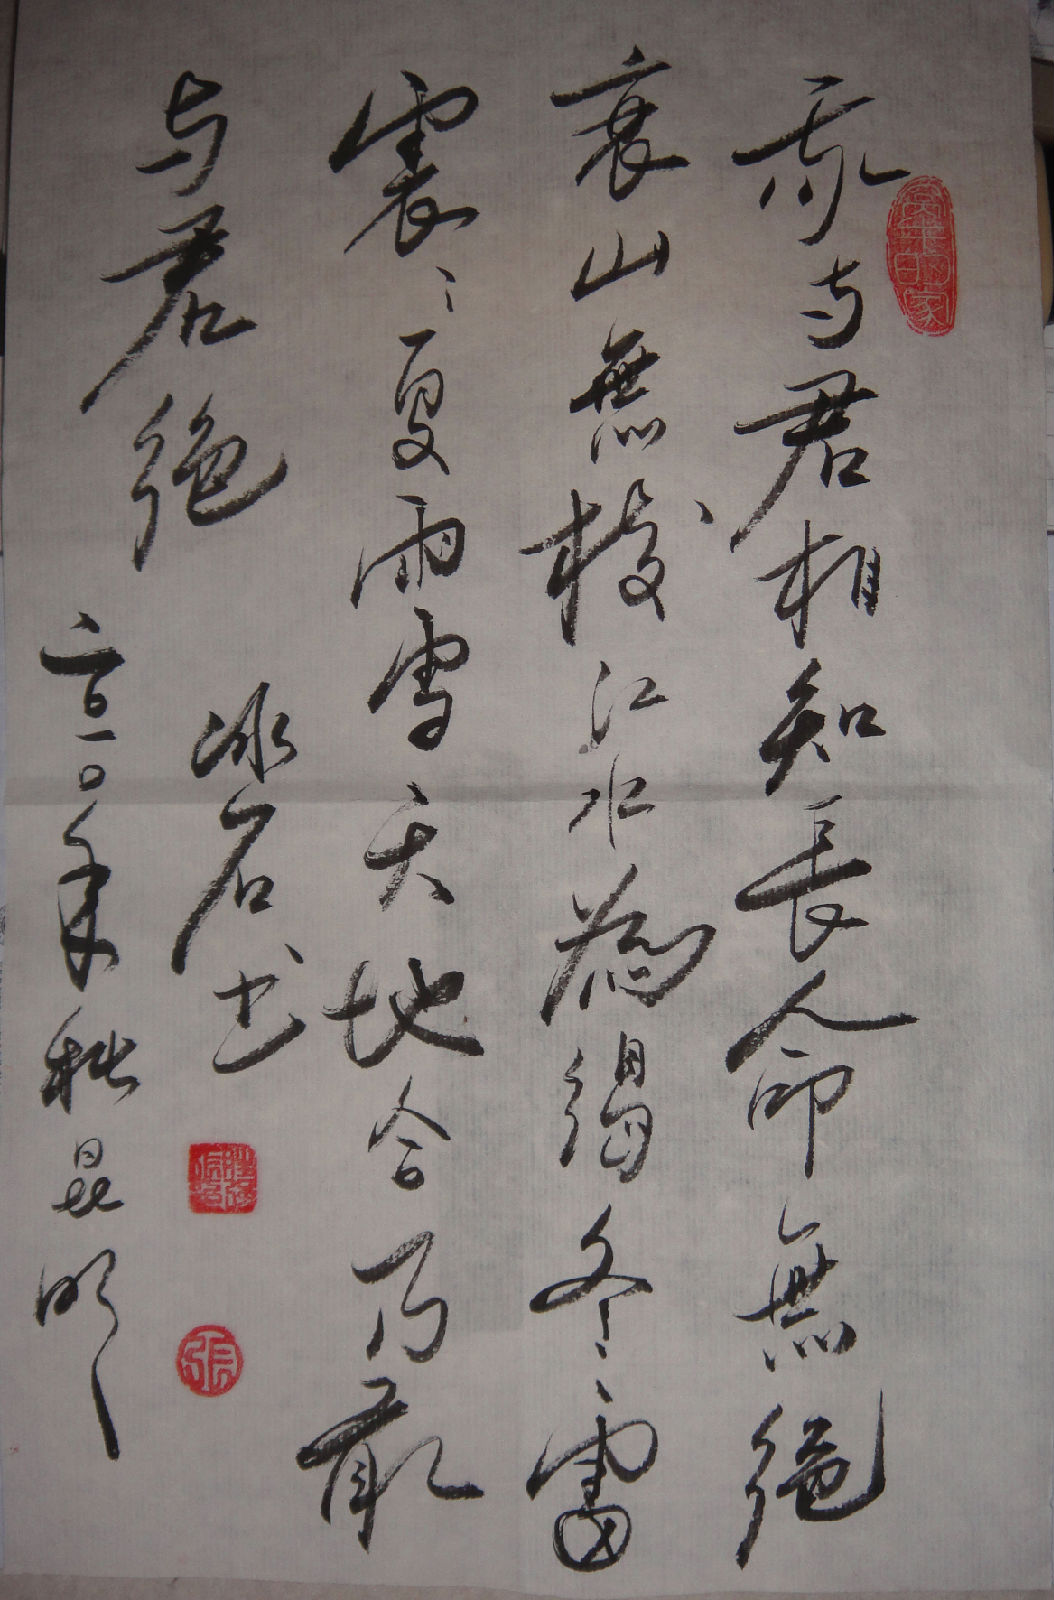 与君相知長命無絕
衰山無棱江水為竭冬雷
震〻夏雨雪天地合乃敢
与君絕 冰石书
二〇一〇年秋昆明
張